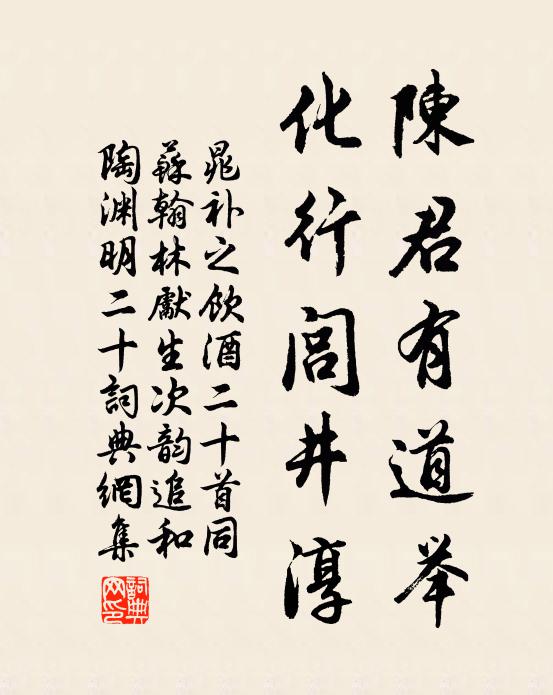 陳君有道举
化行闾井淳
晁补之饮酒二十首同
蘇翰林獻生次韵追和
陶渊明二十詞典網集
詞典網印